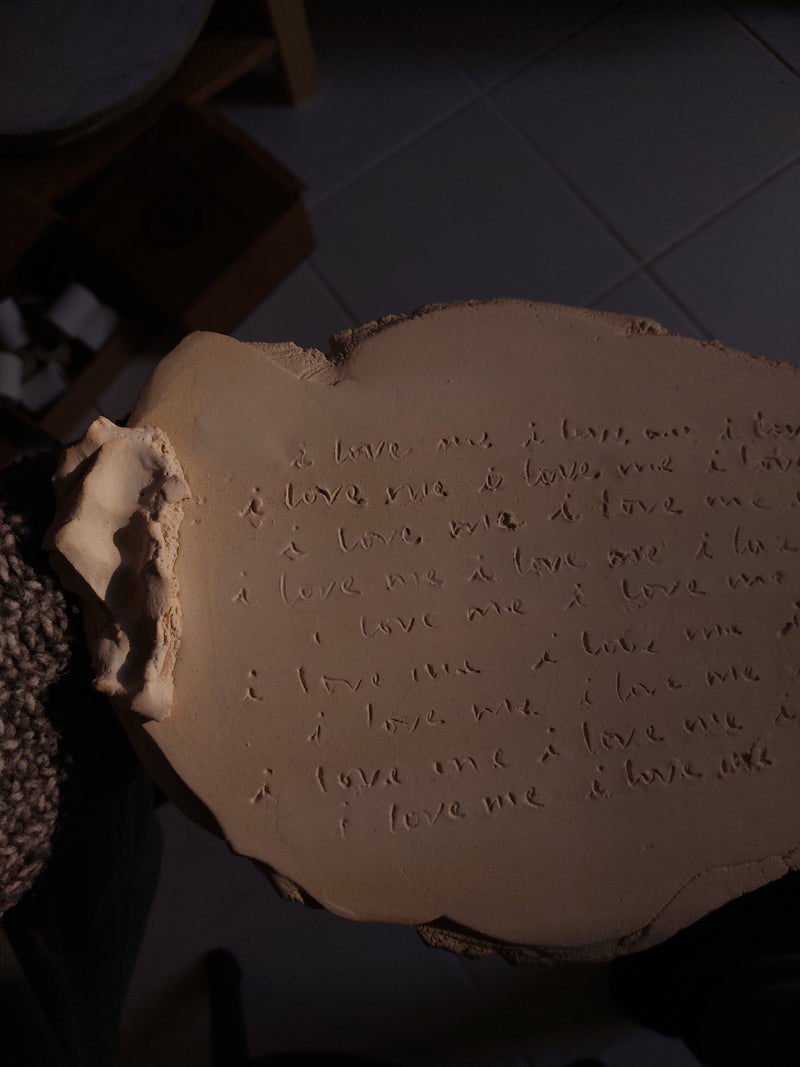 i love me i love me i lov
i love me i love me i love
i love me i love me
i love me i love me i love
i love me i love me
i love me i love me i
i love me i love me
i love me i love me i
i love me i love me